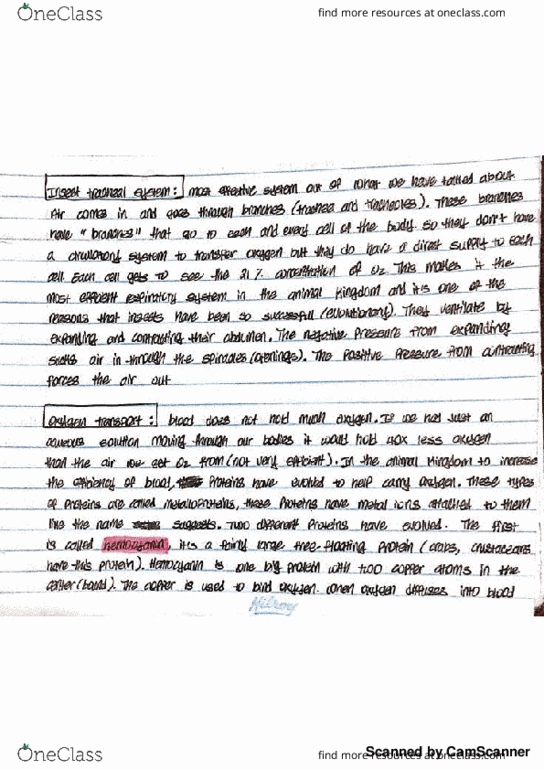 OneClass
find more resources at oneclass.com
Insect tracheal system: most effective system out of what we have talked about
Air comes in and goes through branches (trachea and tracheoles). These branches
have "branches" that go to each and every cell of the body so they don't have
a circulatory system to transfer oxygen but they do have a direct supply to each
cell. Each cell gets to see the 21% concentration of O2. This makes it the
most efficient respiratory system in the animal kingdom and its one of the
reasons that insects have been so successful (evolutionary). They ventilate by
expanding and contracting their abdomen. The negative pressure from expanding
sucks air in through the spiracles (openings). The positive pressure from contracting
forces the air out
Oxygen transport: blood does not hold much oxygen. If we had just an
aqueous solution moving through our bodies it would hold 40x less oxygen
than the air we get O2 from (not very efficient). In the animal kingdom to increase
the efficiency of blood, proteins have evolved to help carry oxygen. These types
of proteins are called metalloproteins, these proteins have metal ions attached to them
like the name suggests. Two different proteins have evolved. The first
is called hemocyanin, its a fairly large free-floating protein (crabs, crustaceans
have this protein). Hemocyanin is one big protein with two copper atoms in the
center (bound). The copper is used to bind oxygen. When oxygen diffuses into blood
Hilroy
OneClass
find more resources at oneclass.com
Scanned by CamScanner